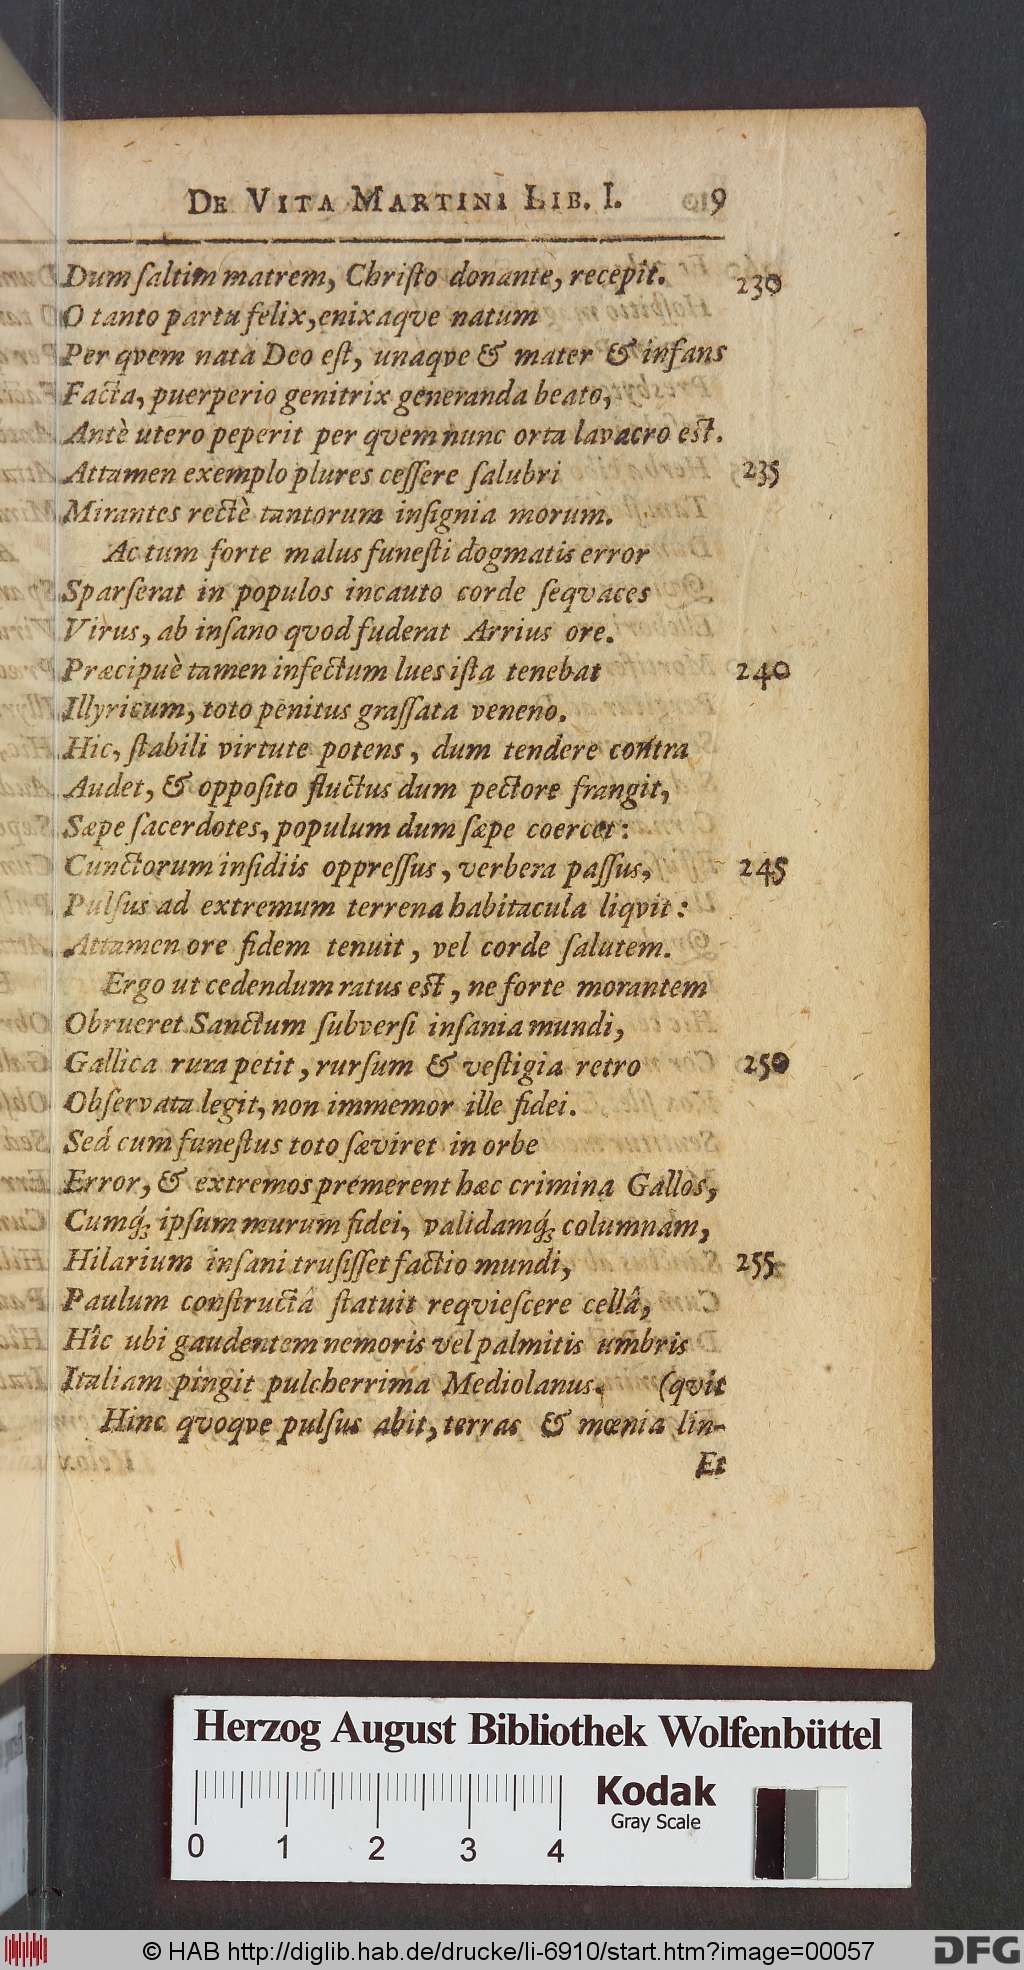 De Vita Martini Lib. I. 9
Dum ſaltim matrem, Chriſto donante, recepit. 230
O tanto partu felix, enixaqve natum
Per qvem nata Deo eſt, unaqve & mater & infans
Facta, puerperio genitrix generanda beato,
Antè utero peperit per qvem nunc orta lavacro eſt.
Attamen exemplo plures ceſſere ſalubri 235
Mirantes rectè tantorum inſignia morum.
Ac tum forte malus funeſti dogmatis error
Sparſerat in populos incauto corde ſeqvaces
Virus, ab inſano qvod fuderat Arrius ore.
Præcipuè tamen infectum lues iſta tenebat 240
Illyricum, toto penitus graſſata veneno.
Hic, ſtabili virtute potens, dum tendere contra
Audet, & oppoſito fluctus dum pectore frangit,
Sæpe ſacerdotes, populum dum ſæpe coercet:
Cunctorum inſidiis oppreſſus, verbera paſſus, 245
Pulſus ad extremum terrena habitacula liqvit:
Attamen ore fidem tenuit, vel corde ſalutem.
Ergo ut cedendum ratus eſt, ne forte morantem
Obrueret Sanctum ſubverſi inſania mundi,
Gallica rura petit, rurſum & veſtigia retro 250
Obſervata legit, non immemor ille fidei.
Sed cum funeſtus toto ſæviret in orbe
Error, & extremos premerent hæc crimina Gallos,
Cumq́ꝫ ipſum murum fidei, validamq́ꝫ columnam,
Hilarium inſani truſiſſet factio mundi, 255
Paulum conſtructâ ſtatuit reqvieſcere cellâ,
Hîc ubi gaudentem nemoris vel palmitis umbris
Italiam pingit pulcherrima Mediolanus. (qvit
Hinc qvoqve pulſus abit, terras & mœnia lin-
Et
Herzog August Bibliothek Wolfenbüttel
Kodak
Gray Scale
0 1 2 3 4
© HAB http://diglib.hab.de/drucke/li-6910/start.htm?image=00057
DFG